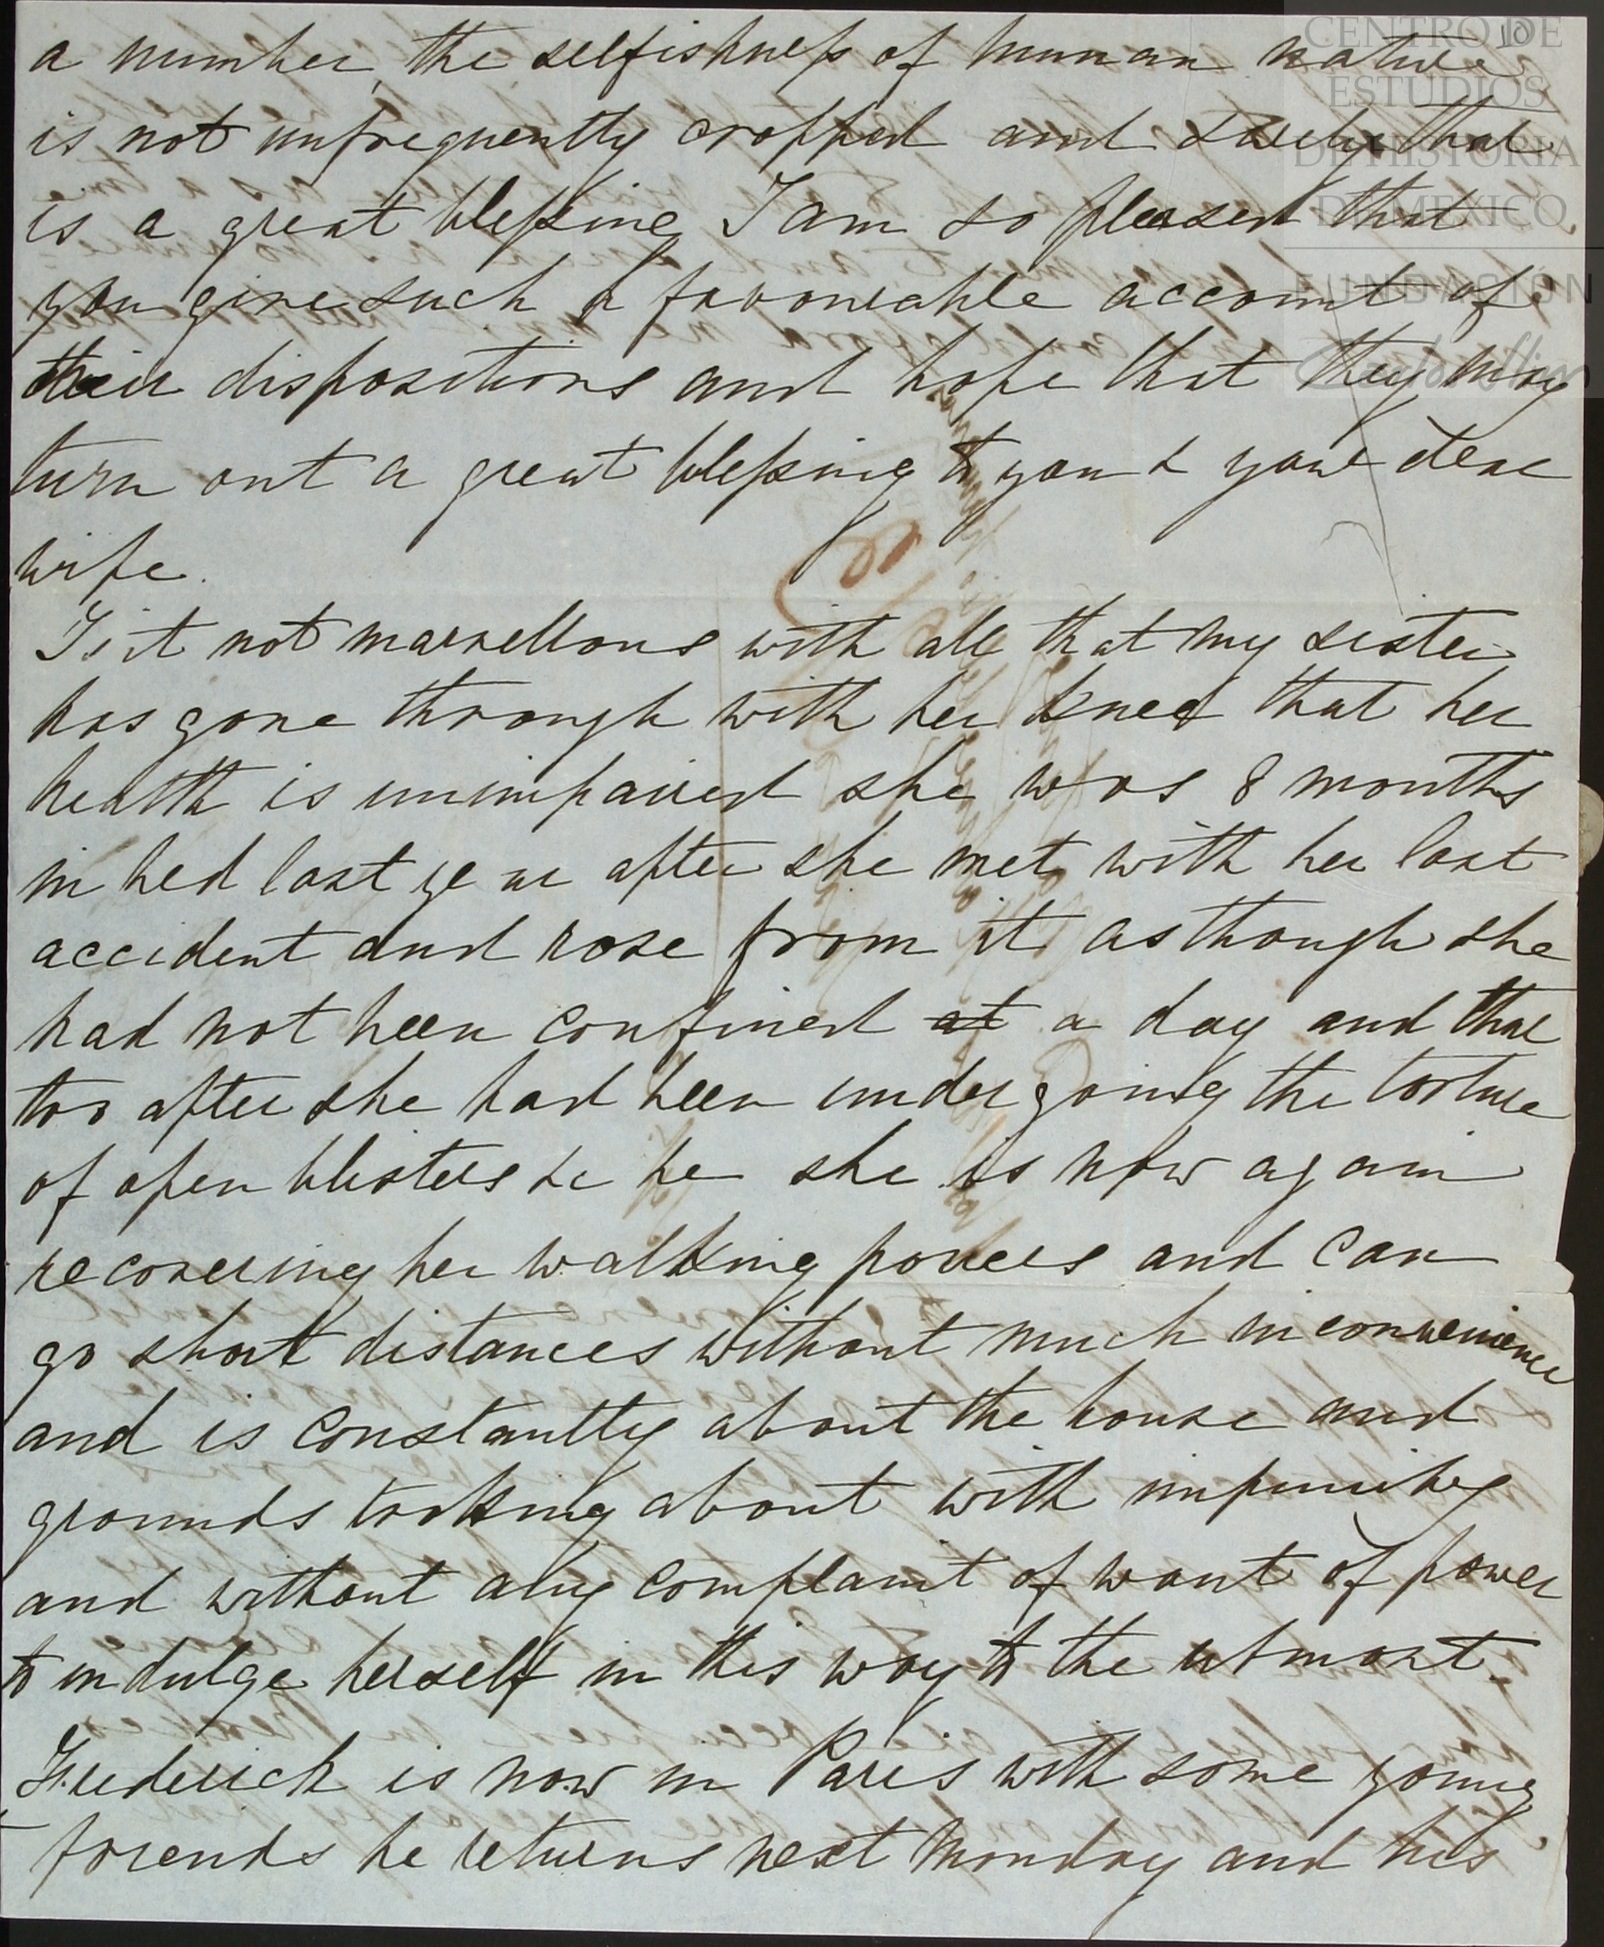 10
CENTRO DE
ESTUDIOS
DE HISTORIA
DE MEXICO
FUNDACIÓN
a number, the selfishness of human nature
is not unfrequently cropped and surely that
is a great blessing I am so pleased that
you give such a favourable account of
their dispositions and hope that they may
turn out a great blessing to you & your dear
wife.
Is it not marvellous with all that my sister
has gone through with her knee that her
health is unimpaired she was 8 months
in bed last year after she met with her last
accident and rose from it as though she
had not been confined at a day and that
too after she had been undergoing the torture
of open blisters &c &c she is now again
recovering her walking powers and can
go short distances without much inconvenience
and is constantly about the house and
grounds looking about with impunity
and without any complaint of want of power
to indulge herself in this way to the utmost.
Frederick is now in Paris with some young
friends he returns next Monday and his